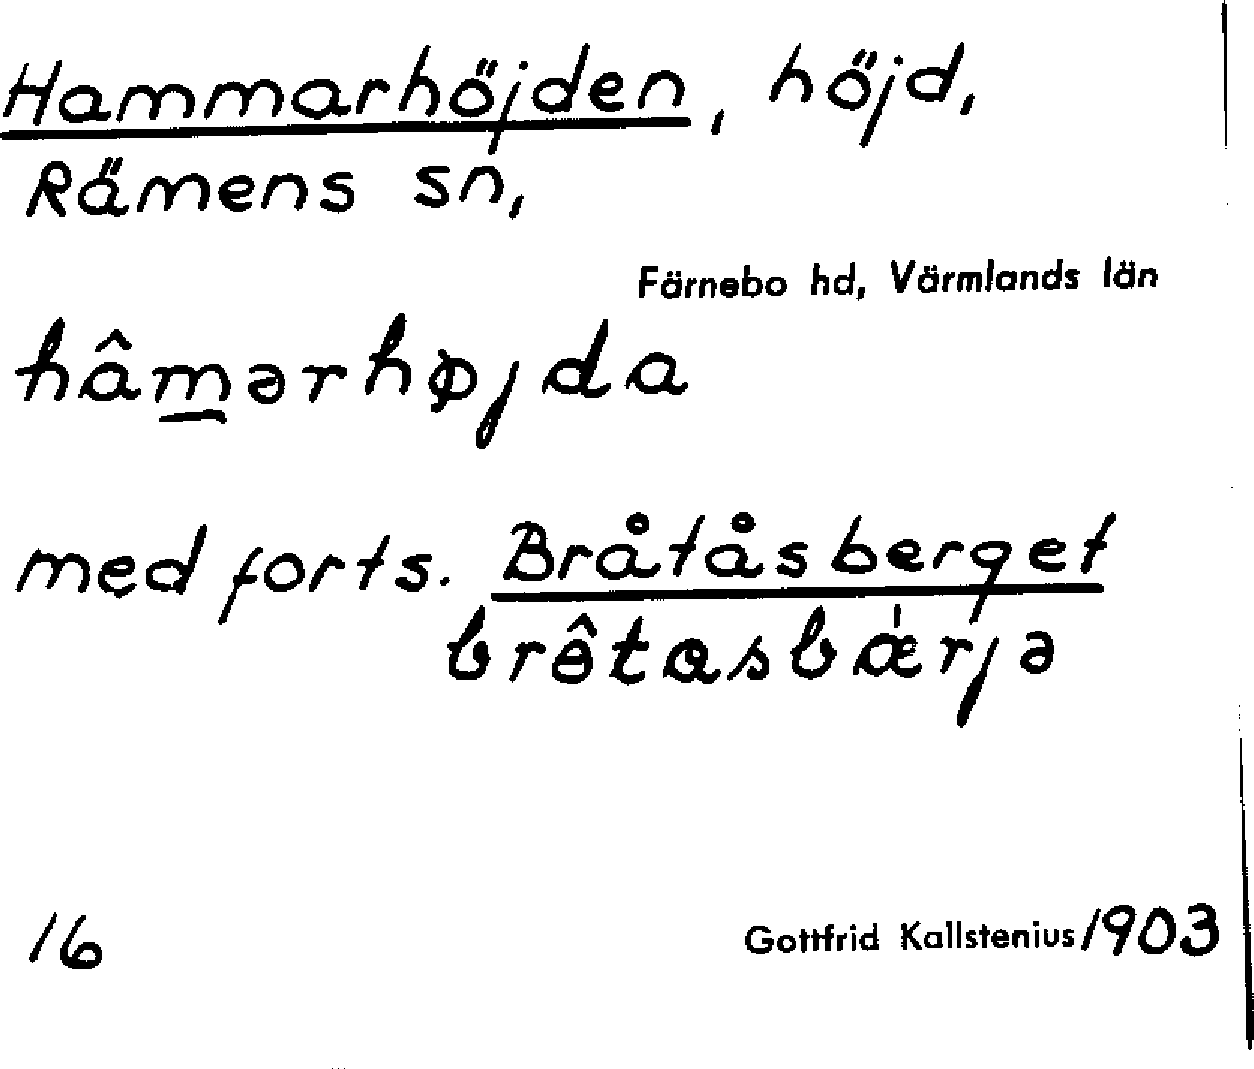 Hammarhöjden, höjd,
Rämens sn,
Färnebo hd, Värmlands län
hâm̲ərhøjda
med forts. Bråtåsberget
brɵ̂tasbǽrjə
16 Gottfrid Kallstenius/1903